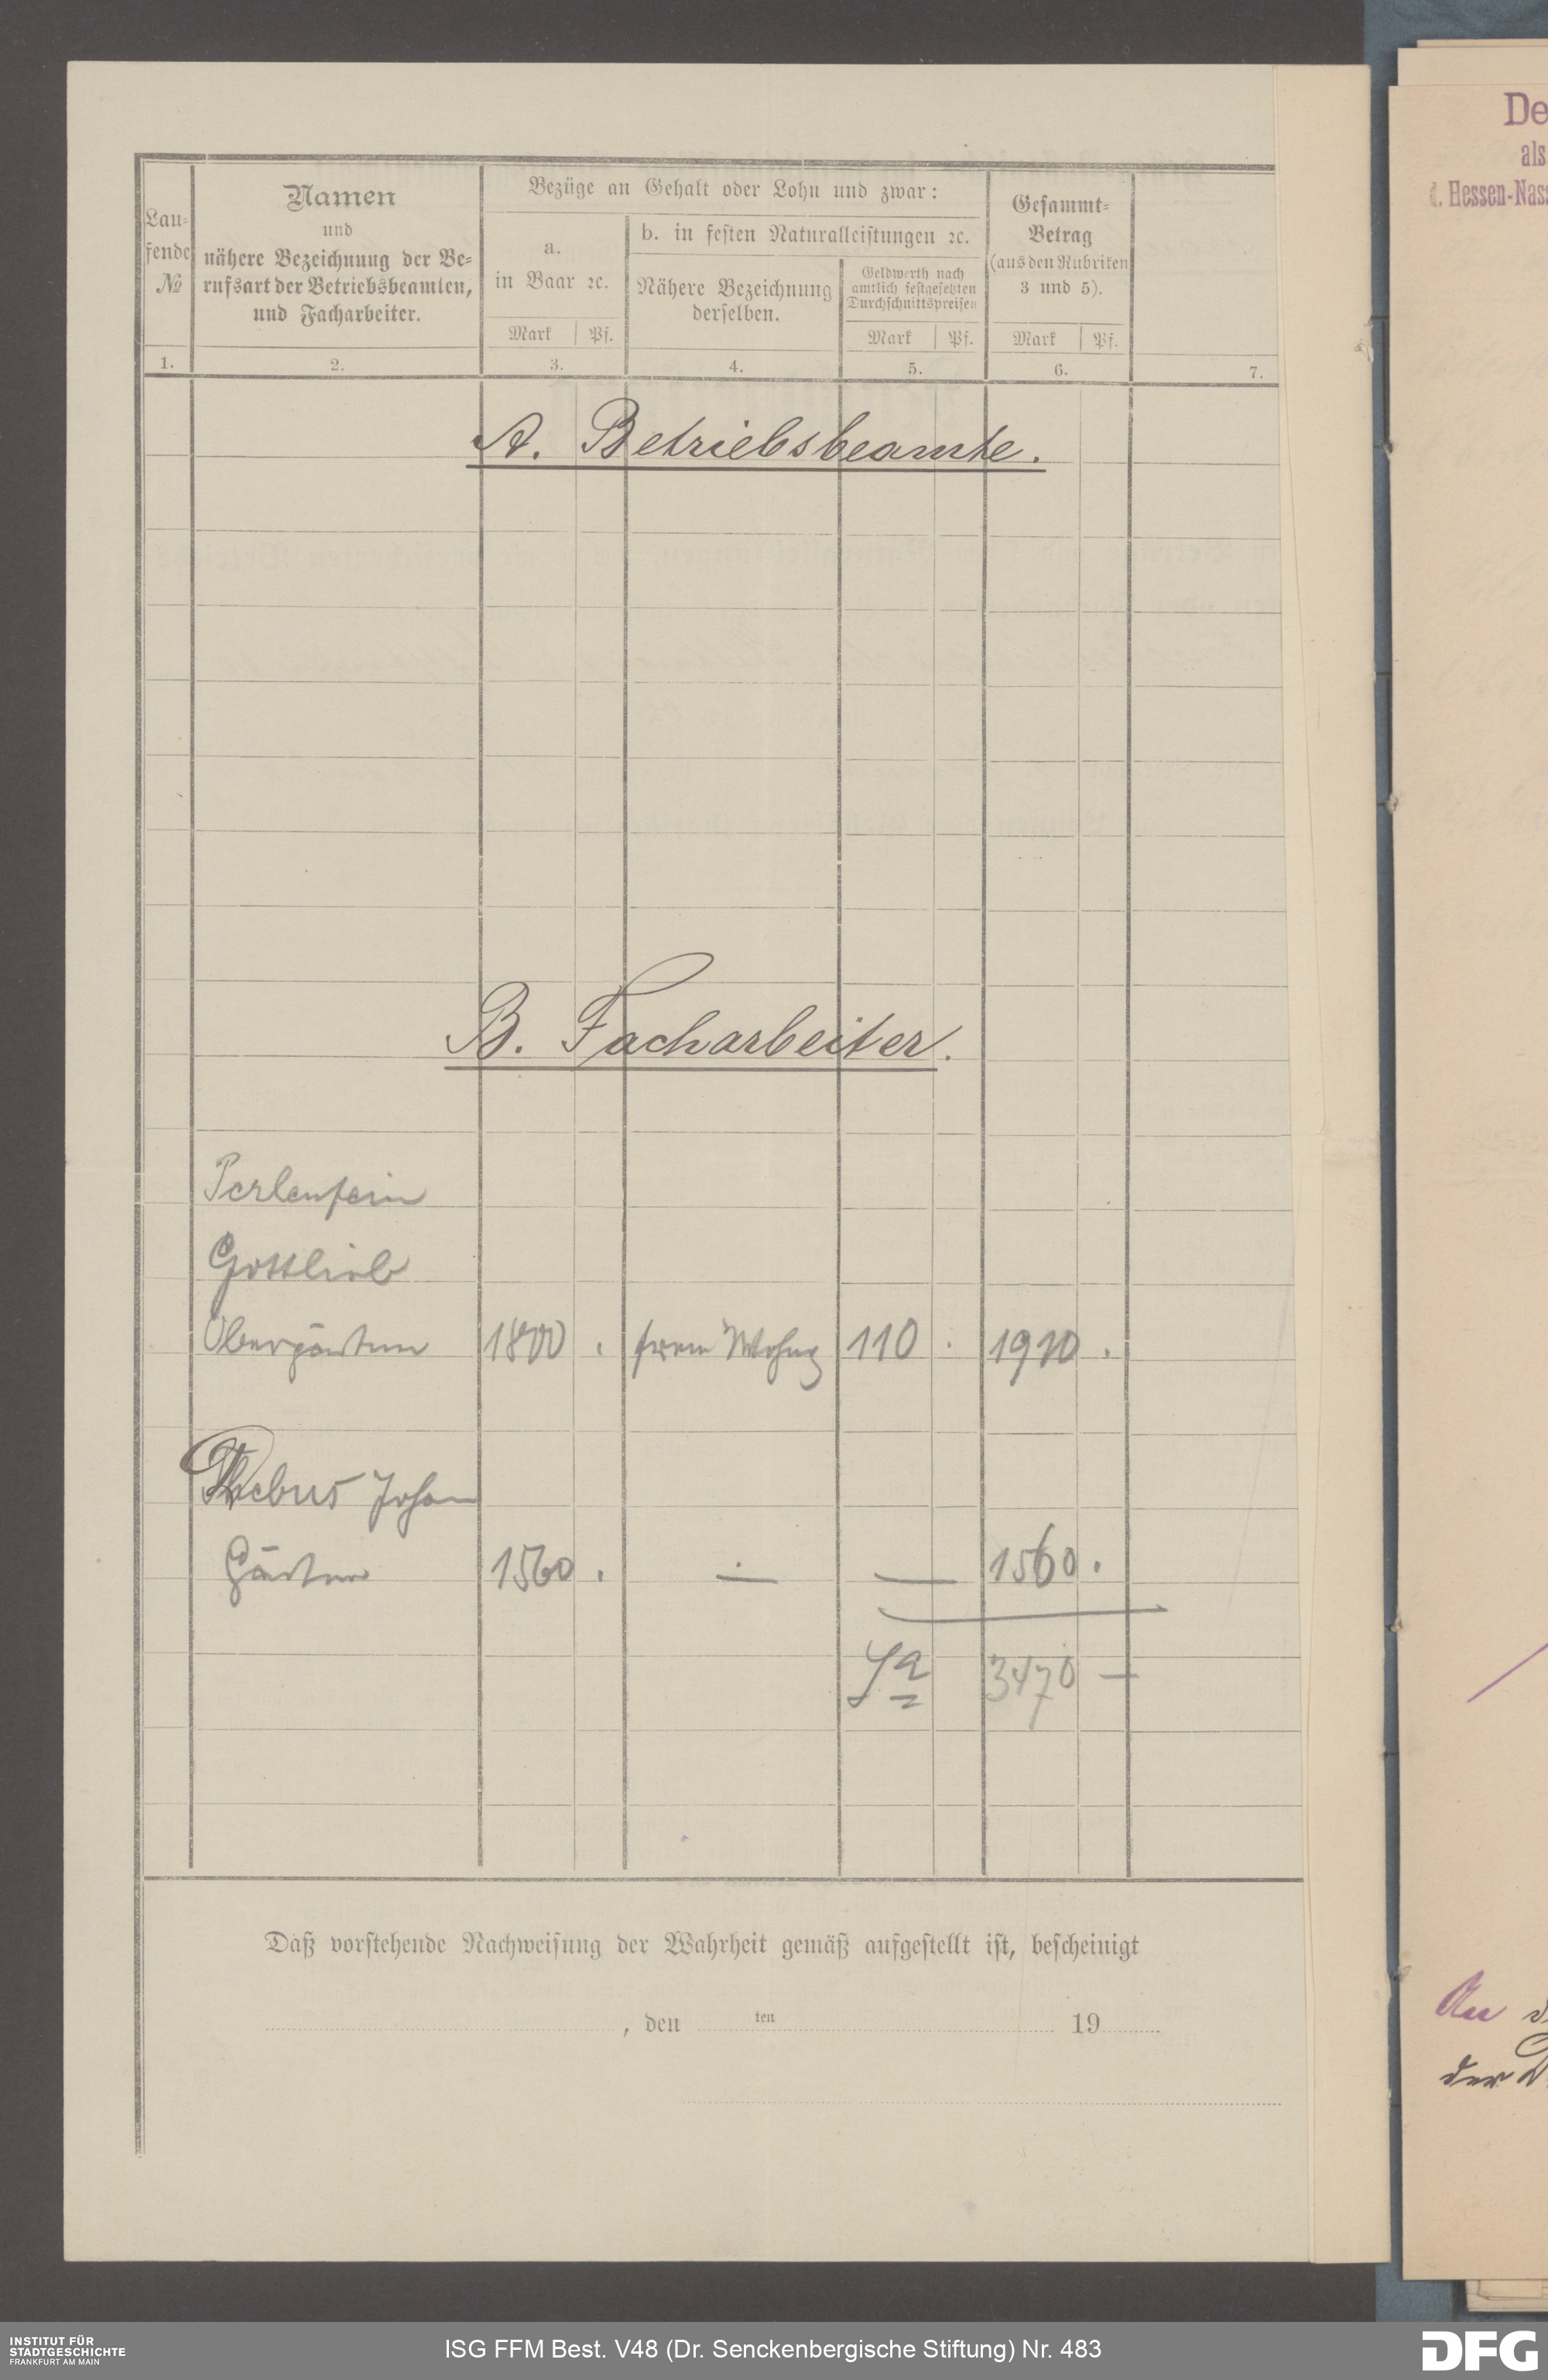 Lau-
fende
№
Namen
und
nähere Bezeichnung der Be-
rufsart der Betriebsbeamten,
und Facharbeiter.
Bezüge an Gehalt oder Lohn und zwar:
a.
in Baar ꝛc.
Mark Pf.
b. in festen Naturalleistungen ꝛc.
Nähere Bezeichnung
derselben.
Geldwerth nach
amtlich festgesetzten
Durchschnittspreisen
Mark Pf.
Gesammt-
Betrag
(aus den Rubriken
3 und 5).
Mark Pf.
1. 2. 3. 4. 5. 6. 7.
A. Betriebsbeamte.
B. Facharbeiter.
Perlenfein
Gottlieb
Obergärtner 1800 . freie Wohng 110 . 1910 .
Johann
Gärtner 1560 . — — 1560 .
Sa 3470 —
Daß vorstehende Nachweisung der Wahrheit gemäß aufgestellt ist, bescheinigt
, den ten 19
De
als
d. Hessen-Nass
An d
der D
INSTITUT FÜR
STADTGESCHICHTE
FRANKFURT AM MAIN
ISG FFM Best. V48 (Dr. Senckenbergische Stiftung) Nr. 483
DFG